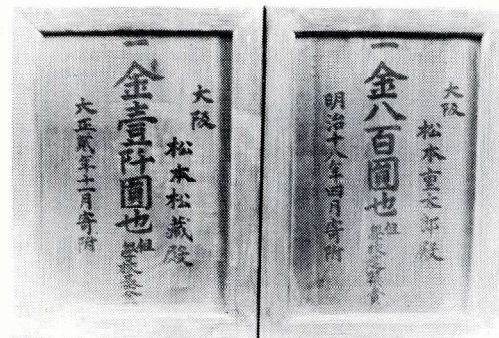 大阪
松本重太郎殿
一金八百圓也 但
明治十八年四月寄附
大阪
松本松藏殿
一金壹阡圓也 但
大正貳年十一月寄附